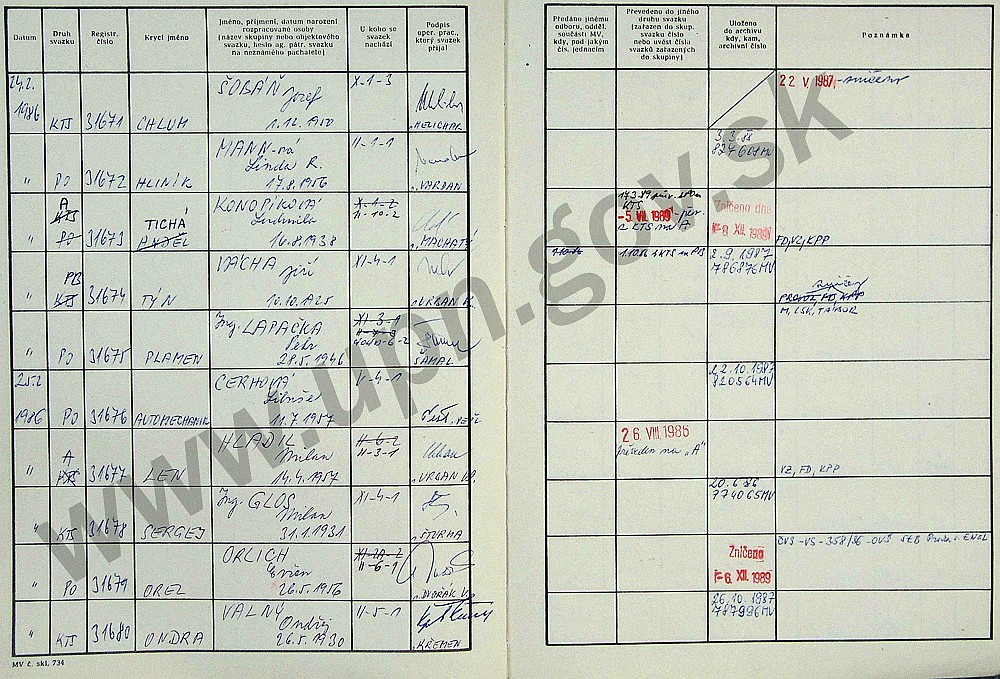 Datum
Druh svazku
Registr. číslo
Krycí jméno
Jméno, příjmení, datum narození
rozpracované osoby
(název skupiny nebo objektového
svazku, heslo ag. pátr. svazku
na neznámého pachatele)
U koho se svazek nachází
Podpis oper. prac., který svazek přijal
Předáno jinému odboru, odděl. součásti MV, kdy, pod jakým čís. jednacím
Převedeno do jiného druhu svazku (zařazen do skup. svazku číslo nebo uvést čísla svazků zařazených do skupiny)
Uloženo do archivu kdy, kam, archivní číslo
Poznámka
24.2. 1986 KTS 31671 CHLUM
ŠOBÁŇ Josef
1.12.1950
X-1-3
MELICHAR
22 V. 1987 - zničeno
" PO 31672 HLINÍK
MANN-vá
Linda R.
17.8.1956
II-1-1
VARDAN
3.3.86
827608 MV
" A KTS PO 31673 TICHÁ ANDĚL
KONOPÍKOVÁ
Ludmila
16.8.1938
X-1-2
II-10-2
MACHATÝ
KTS
-5. VIII. 1989
z KTS na A
Zničeno dne
-8. XII. 1989
FD, VZ, KPP
" PB KTS 31674 TÝN
VÁCHA
Jiří
10.10.1925
XI-4-1
URBAN K.
1.10.86
1.10.86 z KTS na PB
2.9.1987
786876 MV
M, LSK, TÁBOR
" PO 31675 PLAMEN
Ing. LAPAČKA
Petr
28.5.1946
XI-3-1
ŠAMAL
25.2 1986 PO 31676 AUTOMECHANIK
ČERNOVÁ
Libuše
11.7.1957
V-4-1
22.10.1987
810564 MV
" A 31677 LEN
HLADIL
Milan
14.4.1957
II-6-2
II-3-1
URBAN
26. VIII. 1986
převeden na "A"
VZ, FD, KPP
" KTS 31678 SERGEJ
Ing. GLOS
Milan
31.1.1931
XI-4-1
ŠTURMA
20.6.86
774065 MV
" PO 31679 OREL
ORLICH
Evžen
26.5.1956
XI-2A-2
II-6-1
DVOŘÁK V.
Zničeno
-6. XII. 1989
ČVS-VS-358/86-OVS StB
" KTS 31680 ONDRA
VALNÝ
Ondřej
26.5.1930
II-5-1
KŘEMEN
26.10.1987
787996 MV
MV č. skl. 734
www.upn.gov.sk